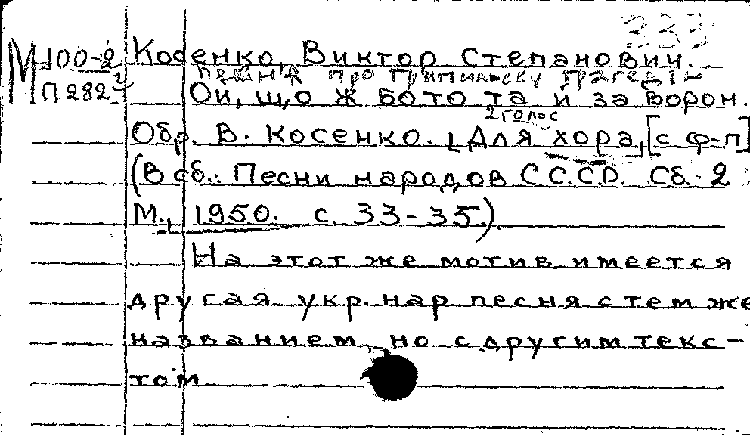 333
М 100-2 Косенко, Виктор Степанович.
Пісня про Трипільську трагедію
П 282 Ой, що ж бо то та й за ворон.
2 голос
Обр. В. Косенко. [Для хора, [с ф-п]
(В сб.: Песни народов С.С.С.Р. Сб. 2
М., 1950. с. 33-35.)
На этот же мотив имеется
другая укр. нар песня с тем же
названием, но с другим текс-
том